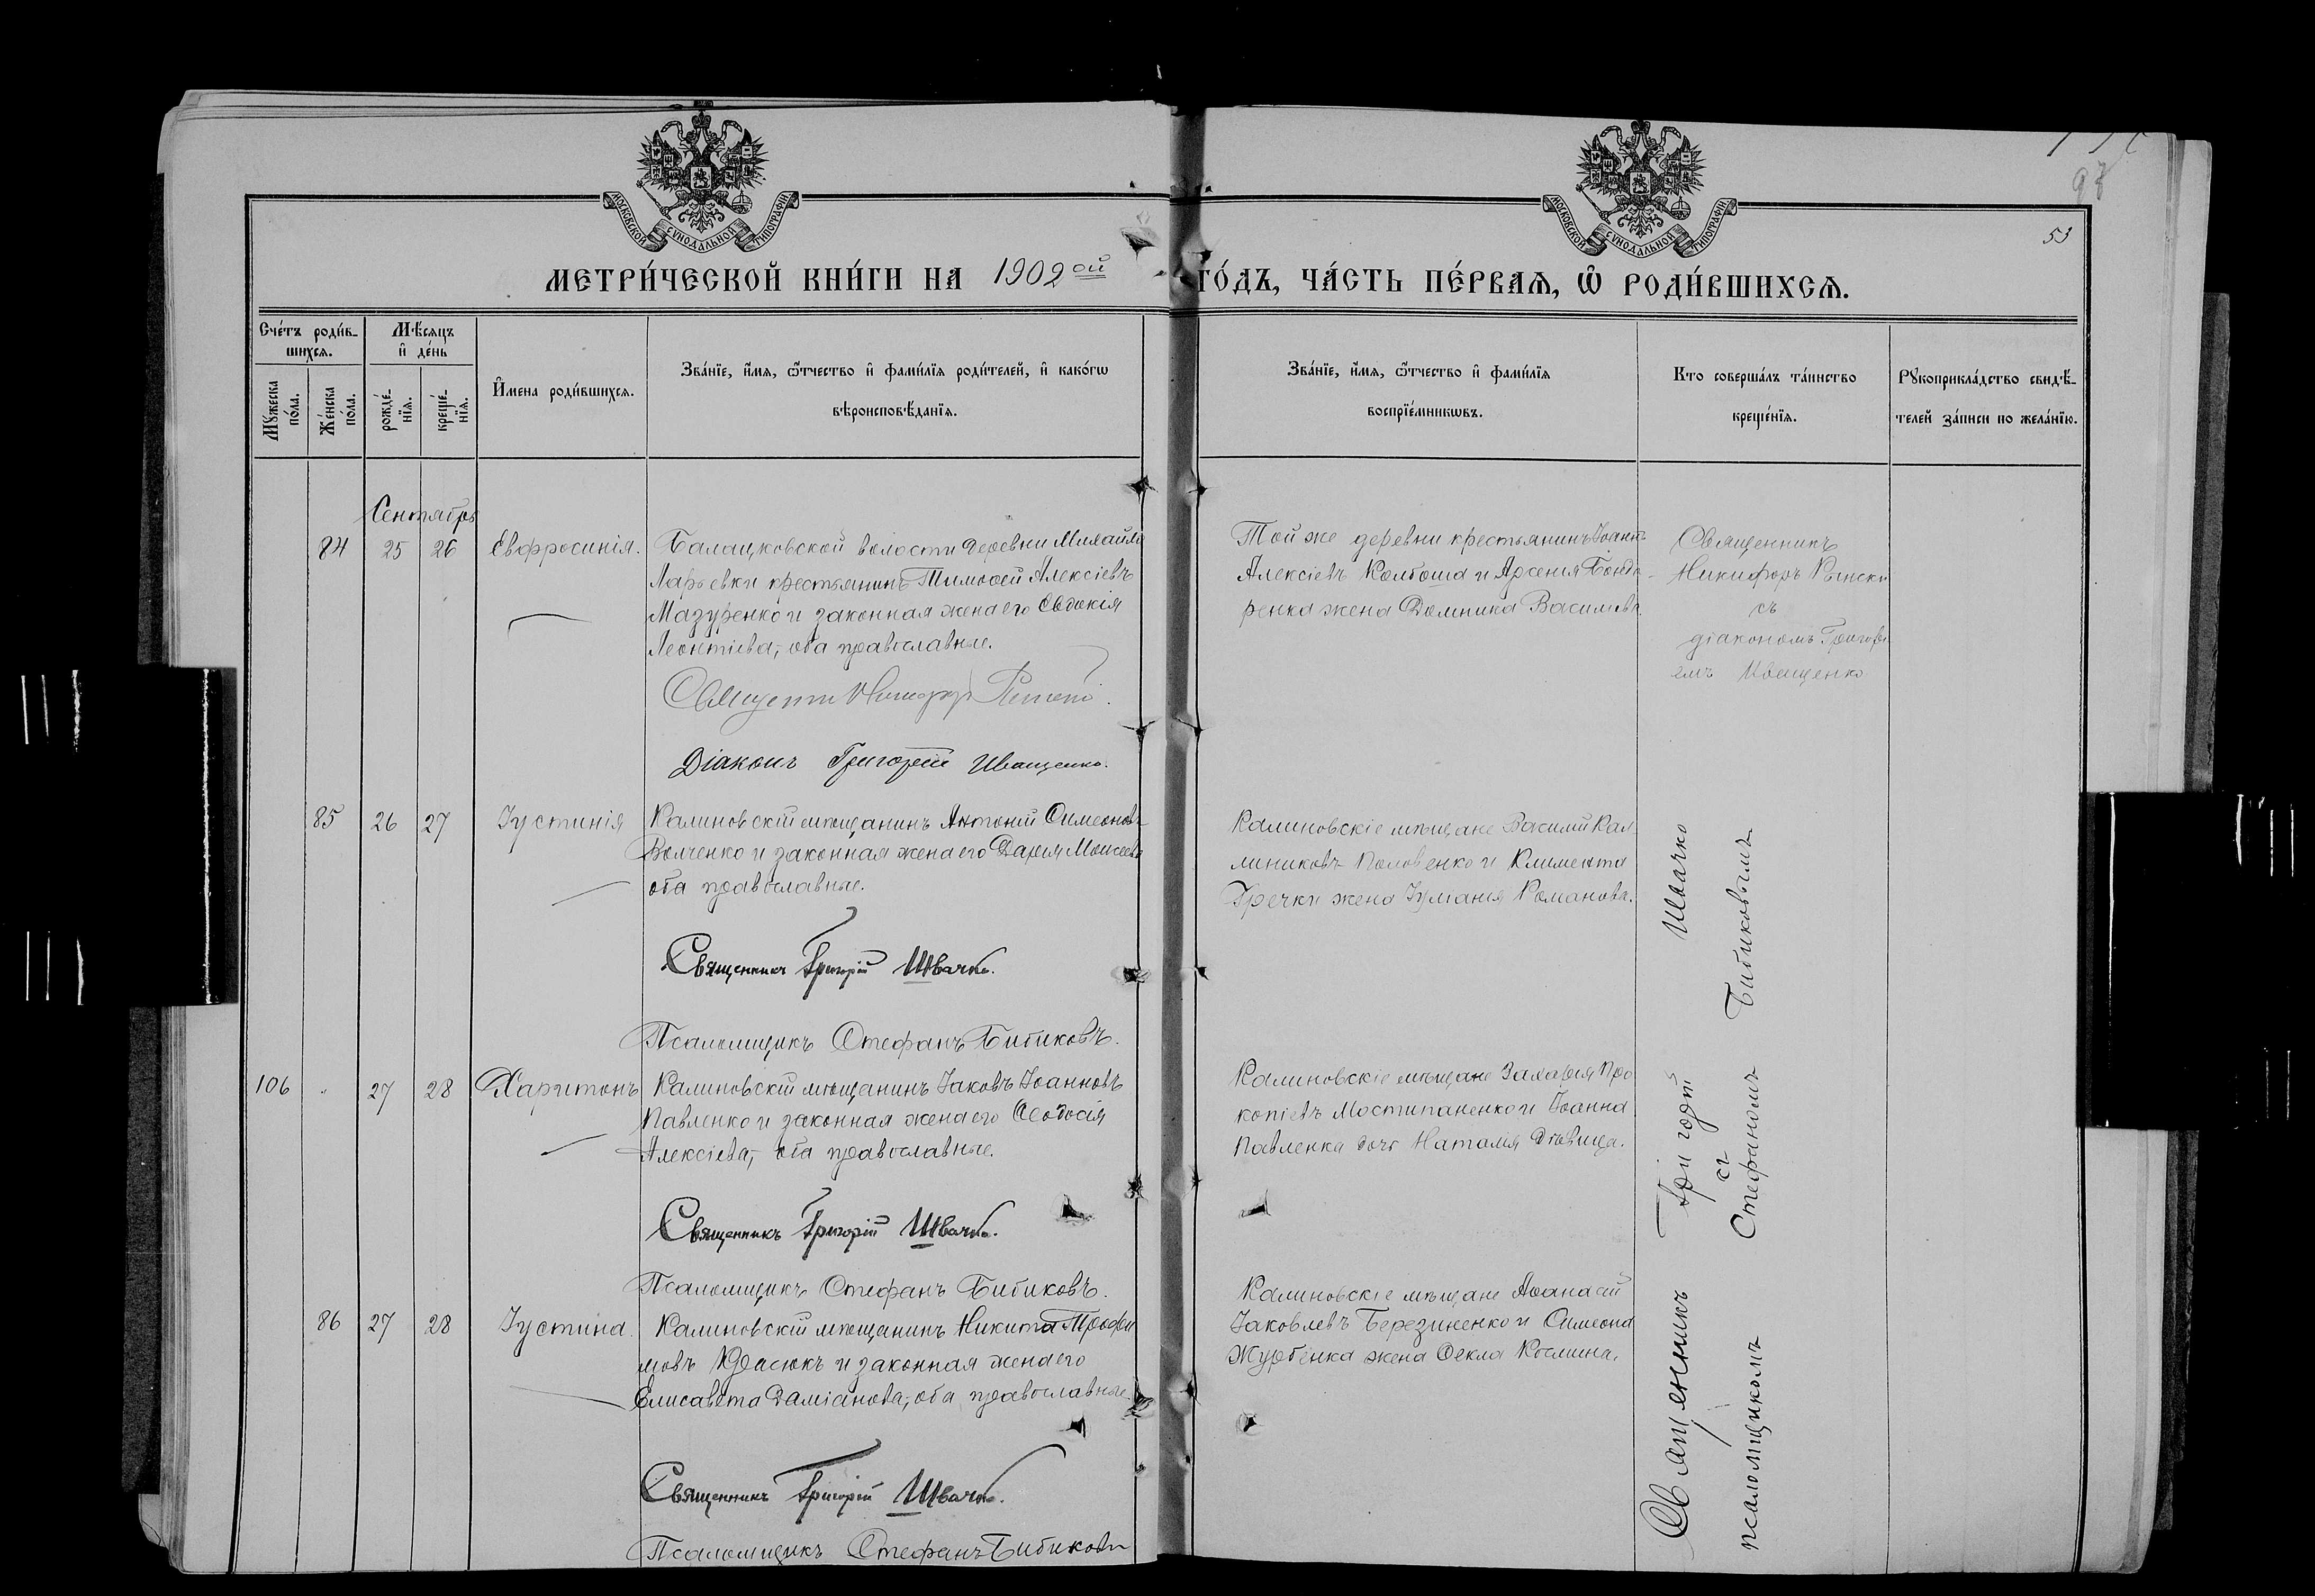 МОСКОВСКОЙ СѴНОДАЛЬНОЙ ТИПОГРАФІИ
МОСКОВСКОЙ СѴНОДАЛЬНОЙ ТИПОГРАФІИ
53
МЕТРИ́ЧЕСКОЙ КНИ́ГИ НА 1902ой ГО́ДЪ, ЧА́СТЬ ПЕ́РВАѦ, Ѡ РОДИ́ВШИХСѦ.
Сче́тъ роди́в-
шихсѧ.
Мѣ́сѧцъ
и де́нь
Мꙋ́жеска
по́ла.
Же́нска
по́ла.
рожде́-
нїѧ.
креще́-
нїѧ.
И҆мена роди́вшихсѧ.
Зва́нїе, и҆́мѧ, ѻ҆́тчество и҆ фами́лїѧ роди́телей, и҆ како́гѡ
вѣроисповѣ́данїѧ.
Зва́нїе, и҆́мѧ, ѻ҆́тчество и҆ фами́лїѧ
воспрїе́мникѡвъ.
Кто соверша́лъ та́инство
креще́нїѧ.
Рꙋкоприкла́дство свидѣ́-
телей за́писи по жела́нїю.
Сентябрь
84 25 26 Евфросинія.
Балацковской волости деревни
Ларьевки крестьянинъ Тимоѳей Алексіевъ
Мазуренко и законная жена его Евдокія
Леонтіева, оба православные.
Діаконъ Григорій Иващенко.
Той же деревни крестьянинъ Іоаннъ
Алексіевъ Колбоша и Арсенія Бонда-
ренка жена Домника Василіева.
Священникъ
Никифоръ
съ
діакономъ Григорі
емъ Иващенко
85 26 27 Іустинія
Калиновскій мѣщанинъ Антоній Симеоновъ
Волченко и законная жена его Дарія Моисеева
оба православные.
Священникъ Григорій Швачко.
Псаломщикъ Стефанъ Бибиковъ.
Калиновскіе мѣщане Василій Кал-
линиковъ Половенко и Климента
Гречки жена Іуліанія Романова.
106 " 27 28 Харитонъ
Калиновскій мѣщанинъ Іаковъ Іоанновъ
Павленко и законная жена его Ѳеодосія
Алексіева, оба православные.
Священникъ Григорій Швачко.
Псаломщикъ Стефанъ Бибиковъ.
Калиновскіе мѣщане Захарія Про
копіевъ Мостипаненко и Іоанна
Павленка дочь Наталія дѣвица.
86 27 28 Іустина.
Калиновскій мѣщанинъ Никита Трофи
мовъ Красюкъ и законная жена его
Елисавета Даміанова, оба православные.
Священникъ Григорій Швачко.
Псаломщикъ Стефанъ Бибиковъ
Калиновскіе мѣщане Аѳанасій
Іаковлевъ Березиненко и Симеона
Журбенка жена Ѳекла Космина.
Священникъ Григорій Швачко
съ
псаломщикомъ Стефаномъ Бибиковымъ